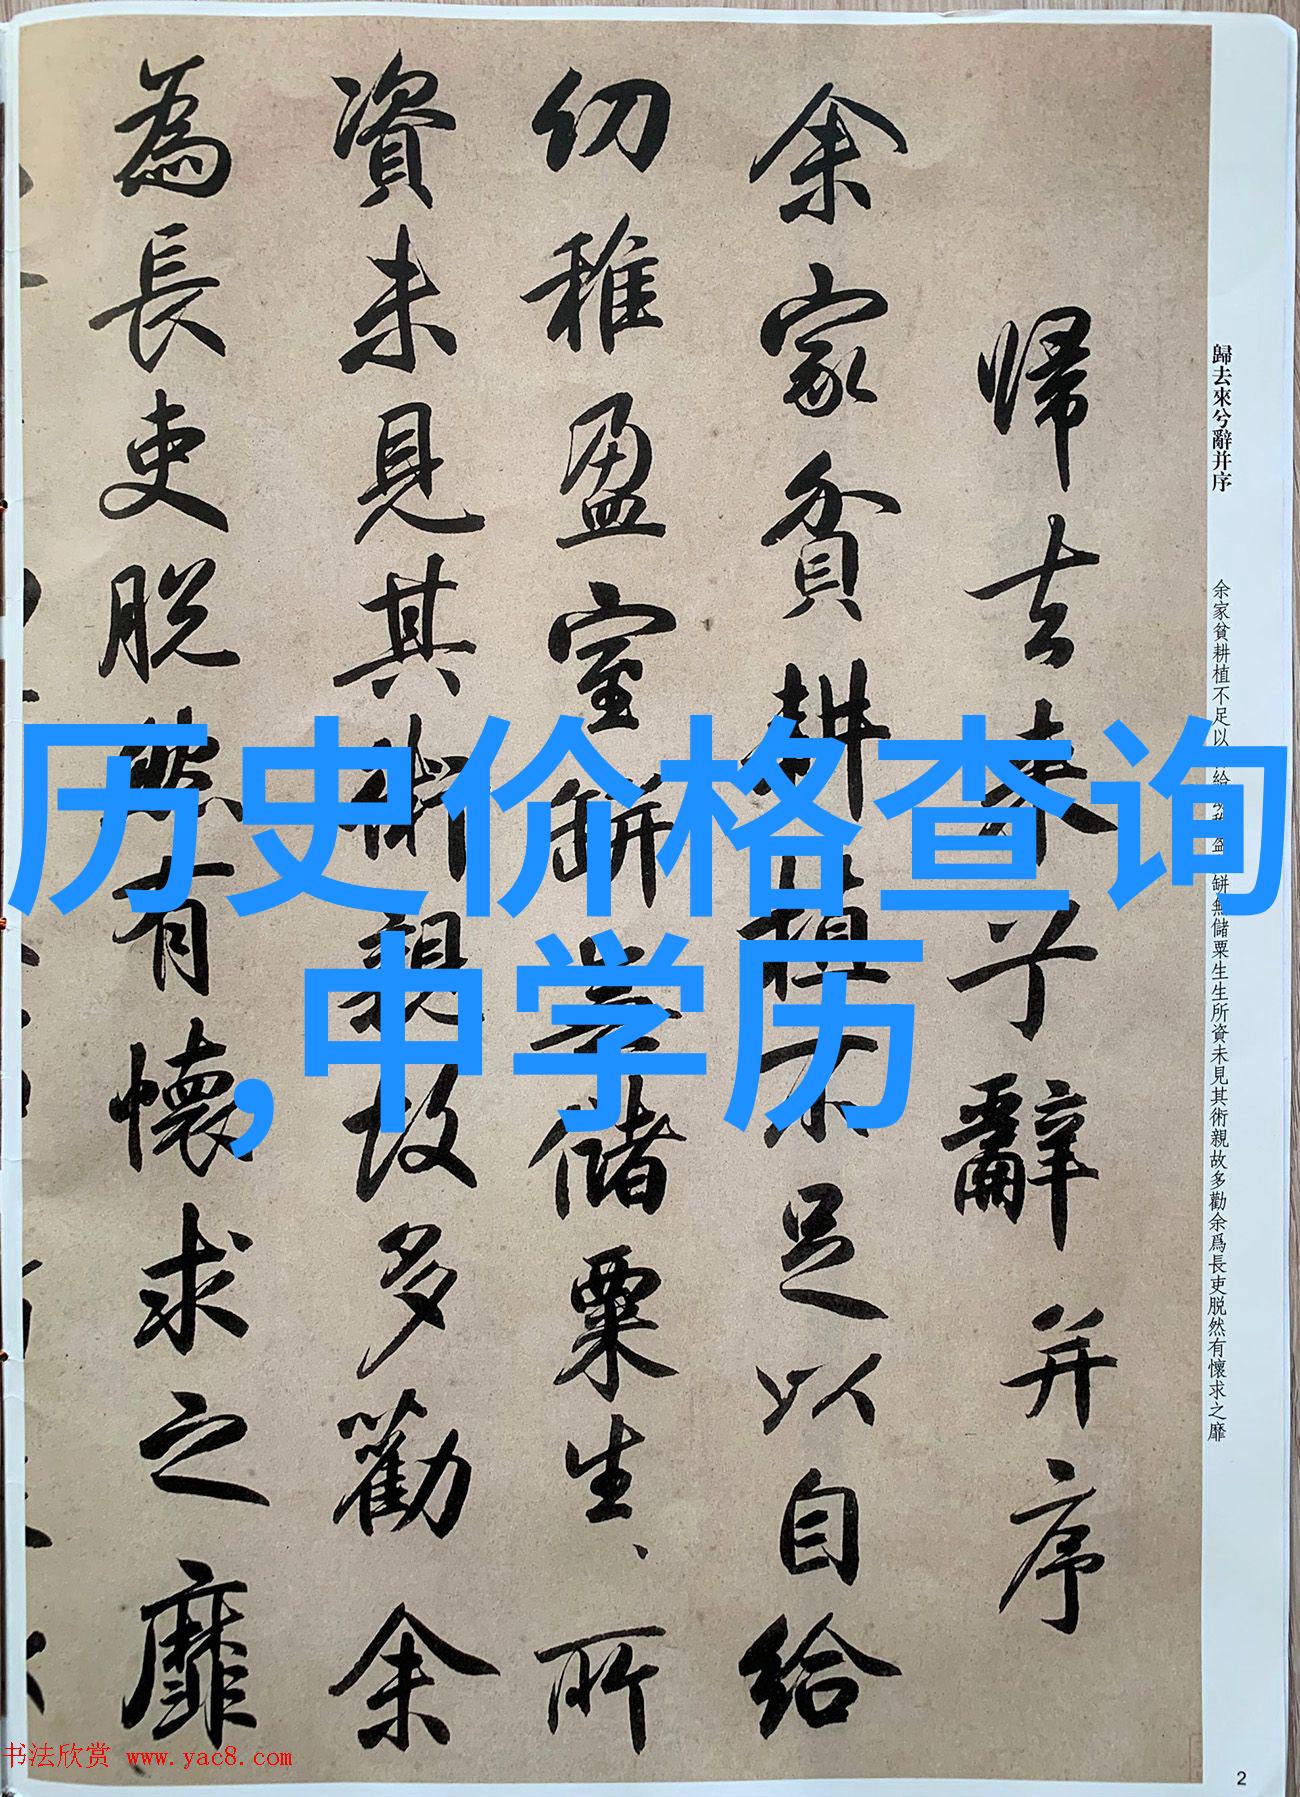 歸去來兮辭并序
余家貧耕植不足以
給
缾無儲粟生生所資未見其術親故多勸余爲長吏脱然有懷求之靡
歸去来兮辭并序
余家貧耕植不足以自給
幼稚盈室缾無儲粟生、所
資未見其術親故多勸余
為長吏脱然有懷求之靡
历史价格查询
,中学历
书法欣赏 www.yac8.com
2